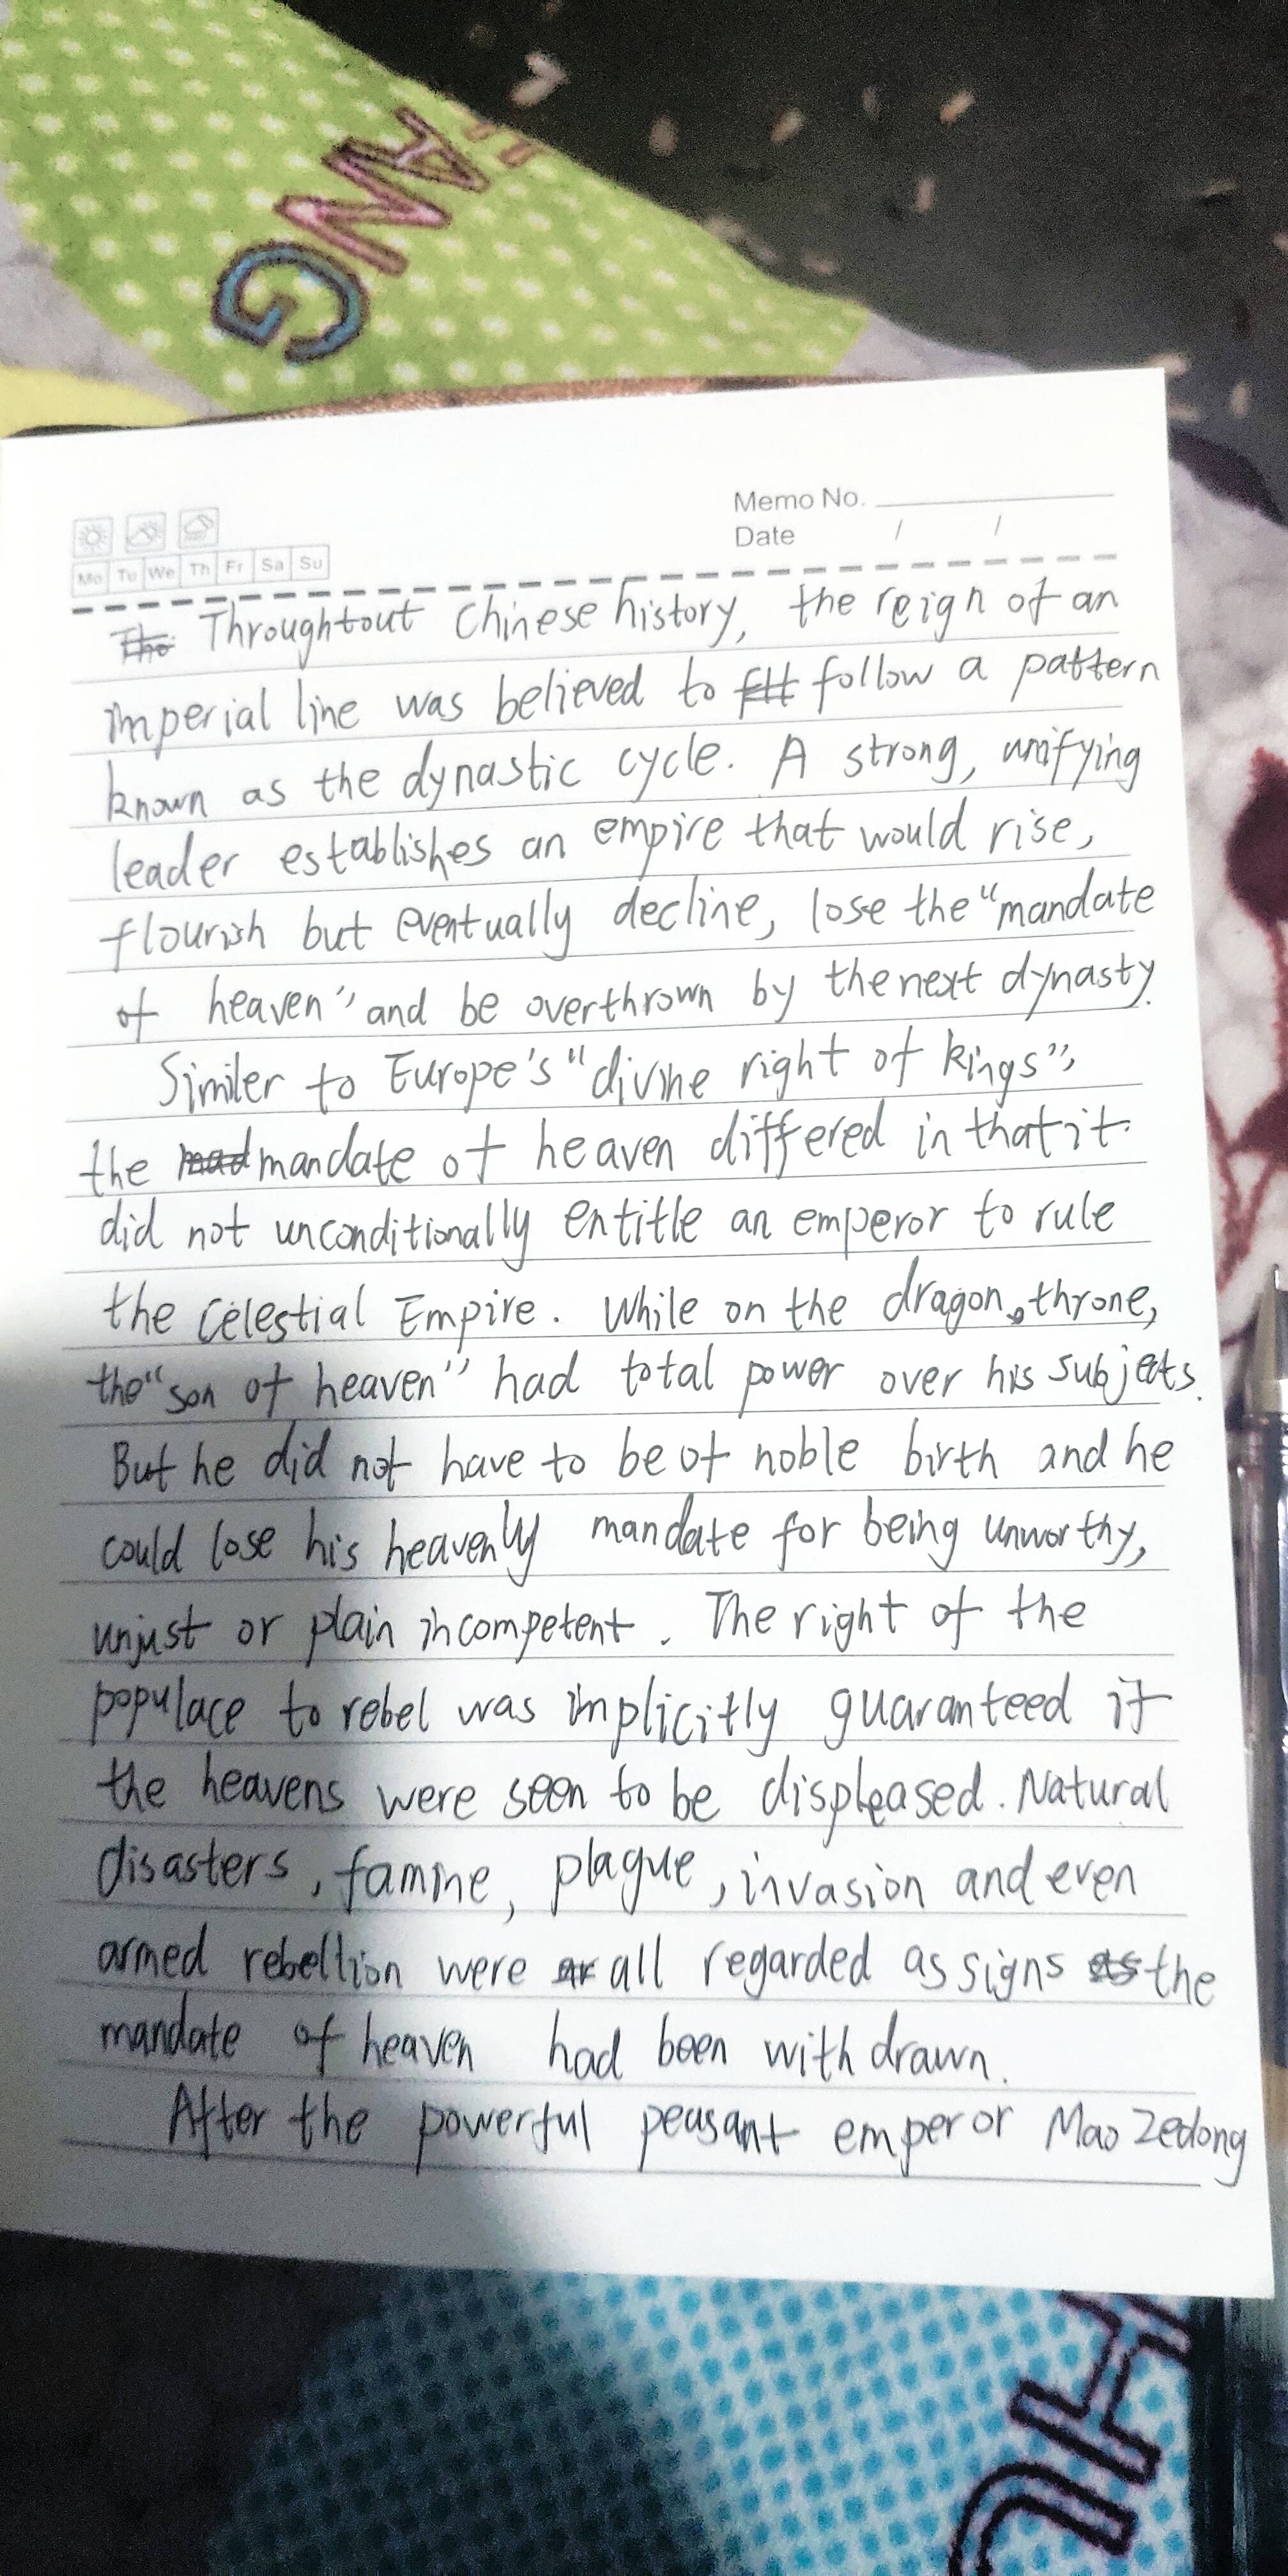 ANG
Memo No.
Date / /
Mo Tu We Th Fr Sa Su
The Throughtout Chinese history, the reign of an
imperial line was believed to follow a pattern
known as the dynastic cycle. A strong, unifying
leader establishes an empire that would rise,
flourish but eventually decline, lose the "mandate
of heaven" and be overthrown by the next dynasty.
Similer to Europe's "divine right of kings",
the mad mandate of heaven differed in that it
did not unconditionally entitle an emperor to rule
the Celestial Empire. While on the dragon throne,
the "son of heaven" had total power over his subjects.
But he did not have to be of noble birth and he
could lose his heavenly mandate for being unworthy,
unjust or plain incompetent. The right of the
populace to rebel was implicitly guaranteed if
the heavens were seen to be displeased. Natural
disasters, famine, plague, invasion and even
armed rebellion were ar all regarded as signs as the
mandate of heaven had been withdrawn.
After the powerful peasant emperor Mao Zedong